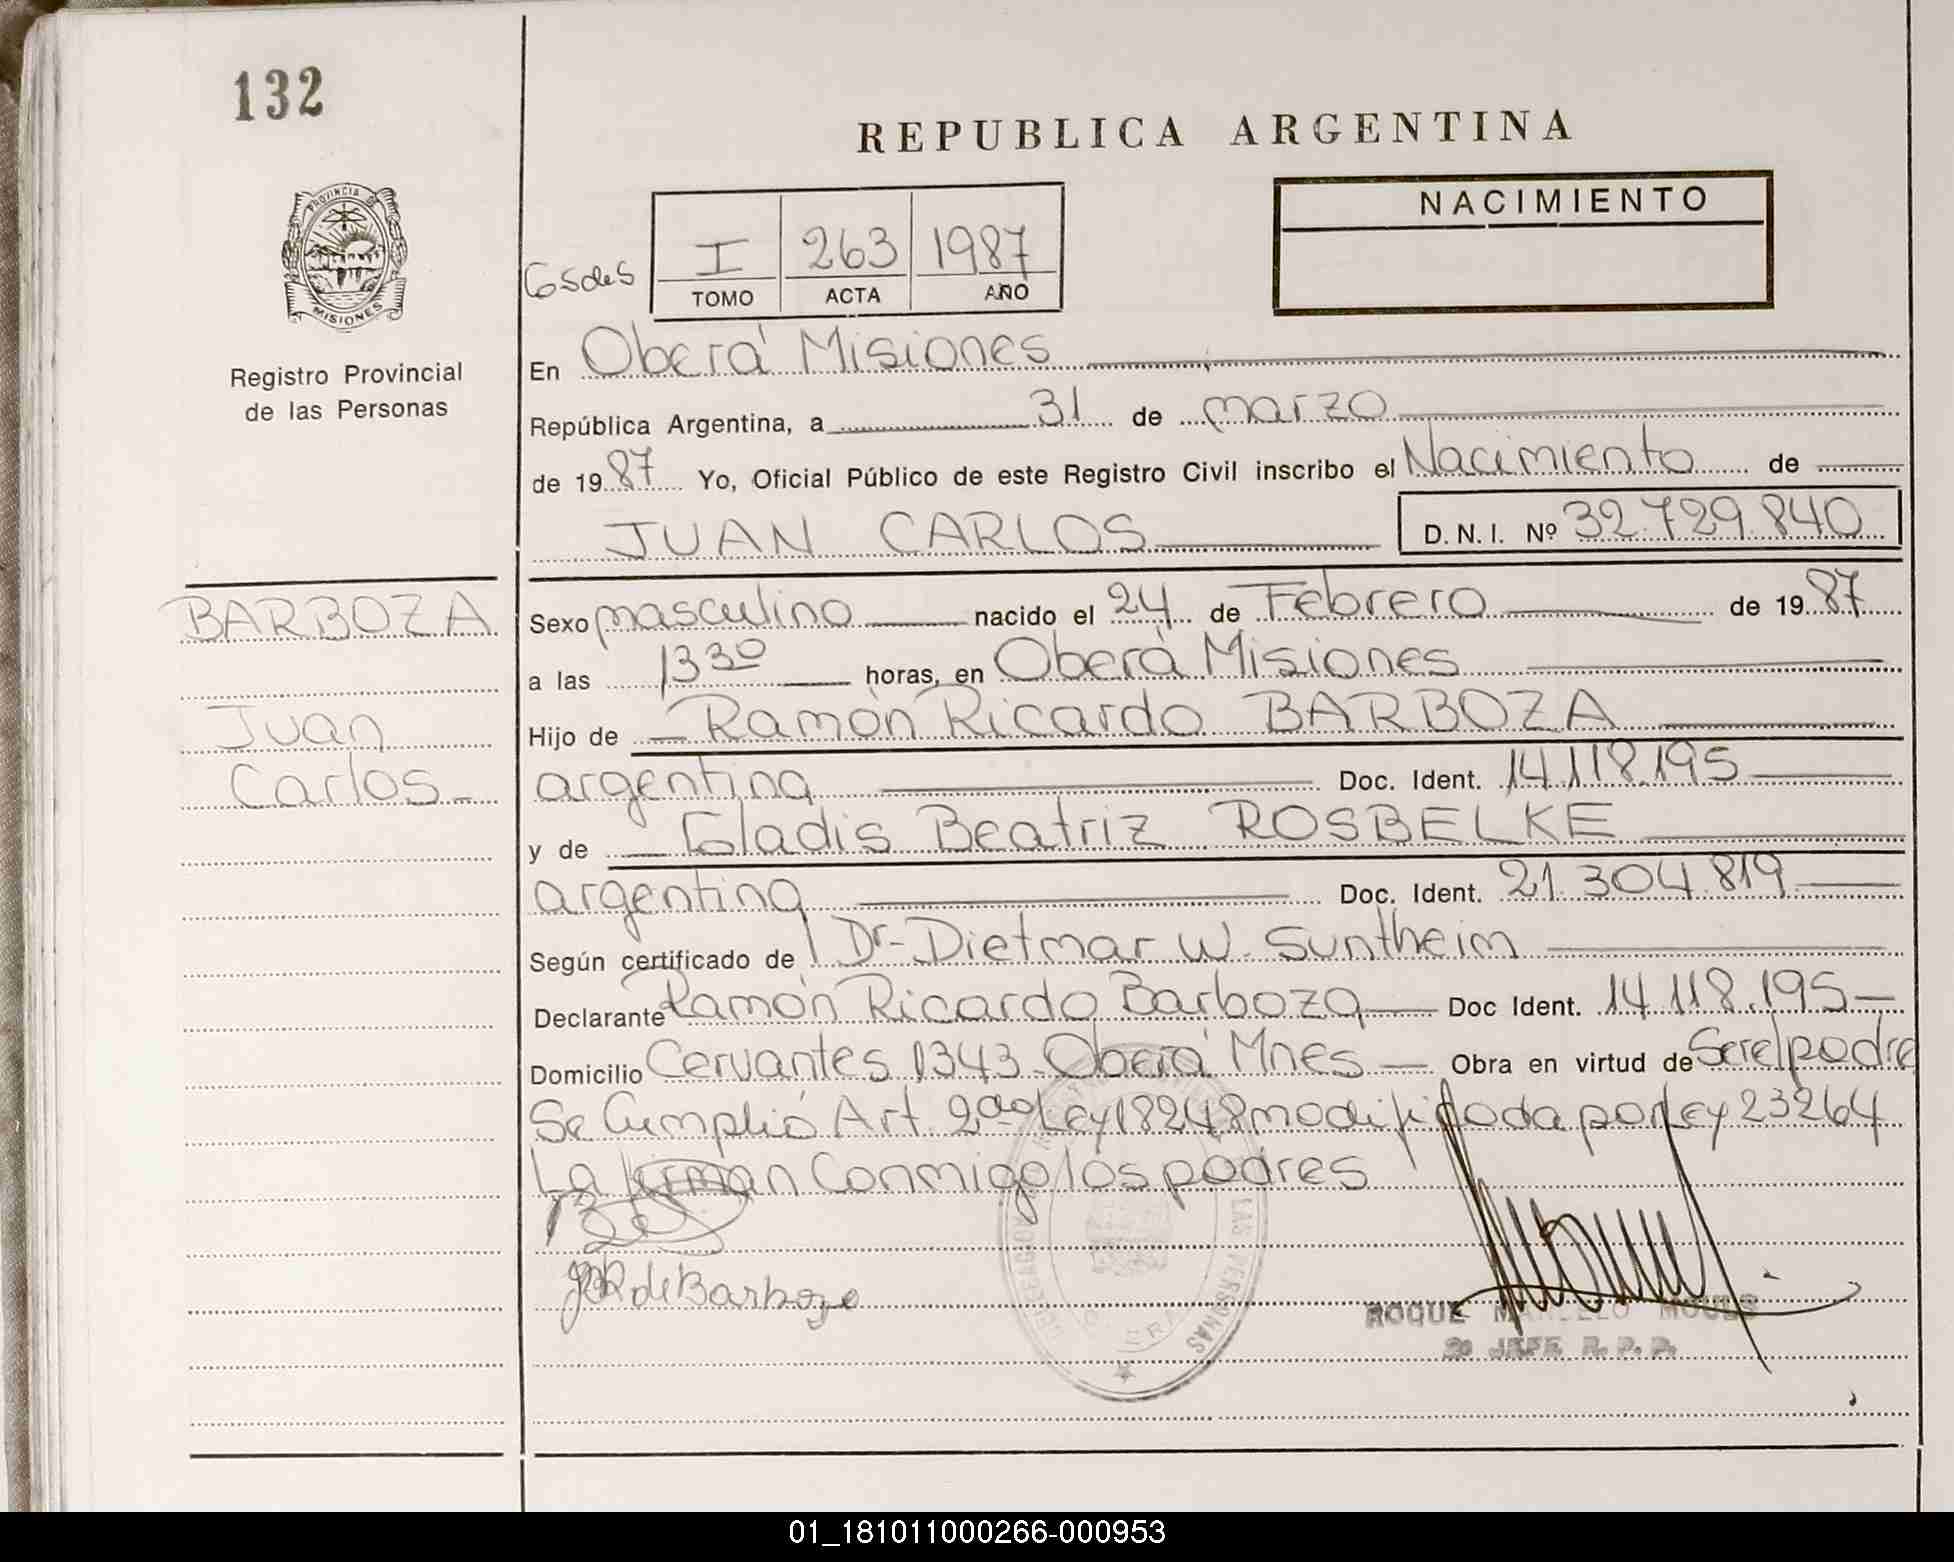 132
REPUBLICA ARGENTINA
PROVINCIA DE
MISIONES
NACIMIENTO
I 263 1987
TOMO ACTA AÑO
Registro Provincial
de las Personas
En Oberá Misiones
República Argentina, a 31 de marzo
de 1987 Yo, Oficial Público de este Registro Civil inscribo el Nacimiento de
JUAN CARLOS D.N.I. Nº 32.729.840
BARBOZA
Juan
Carlos
Sexo masculino nacido el 24 de Febrero de 1987
a las 13 30 horas, en Oberá Misiones
Hijo de Ramón Ricardo BARBOZA
argentina Doc. Ident. 14.118.195
y de Gladis Beatriz ROSBELKE
argentina Doc. Ident. 21.304.819
Según certificado de Dr- Dietmar W. Suntheim
Declarante Ramón Ricardo Barboza Doc Ident. 14.118.195
Domicilio Cervantes 1343 Oberá Mnes Obra en virtud de Ser el padre
Se Cumplió Art. 2do Ley 18248 modificada por Ley 23264
La firman Conmigo los padres
de Barboza
LAS PERSONAS
ROQUE
2º JEFE R. P. P.
01_181011000266-000953